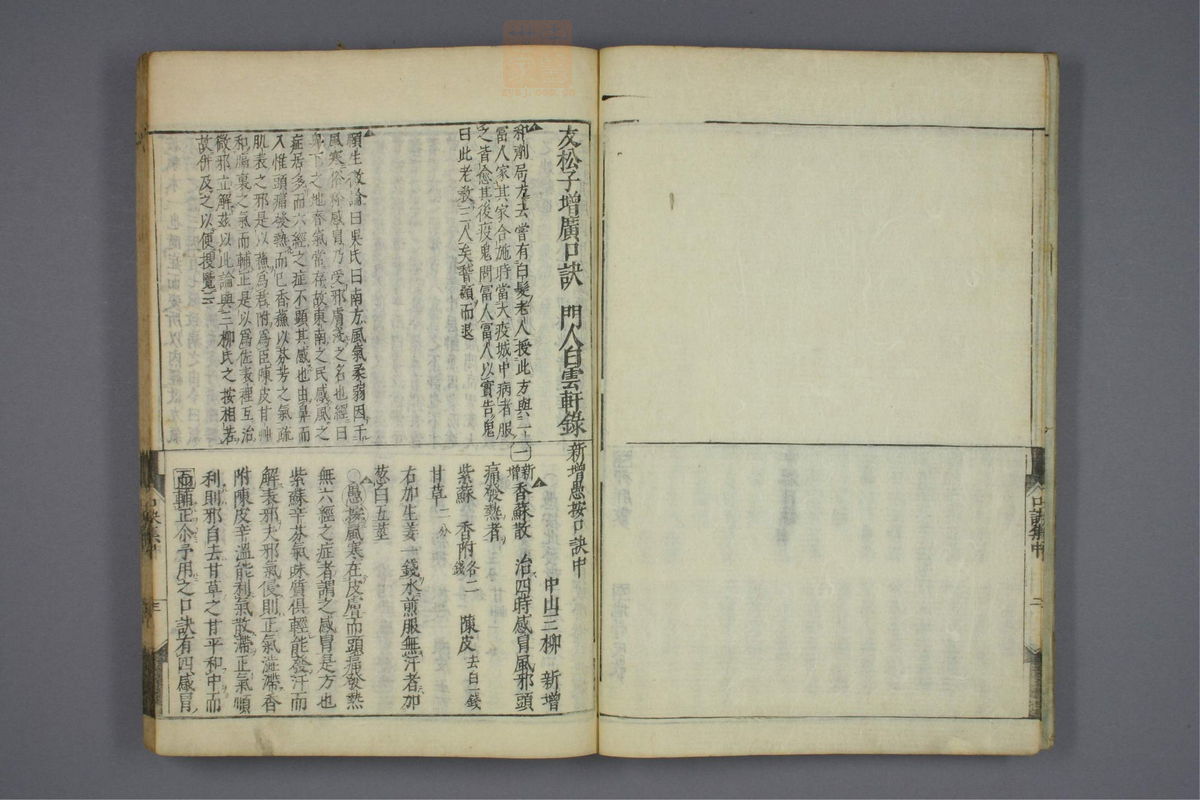 友松子增廣口訣　門人白雲軒錄
和劑局方去嘗有白髮老人授此方與一
富人家其家合施時當大疫城中病者服
之皆愈其後疫鬼問富人富人以實告鬼
曰此老教三人矣稽顙而退
頤生微論曰吳氏曰南方風氣柔弱因于
風寒俗稱感冒乃受邪膚淺之名也經曰
卑下之地春氣常存故東南之民感風之
症居多而六經之症不顯其感也由鼻而
入惟頭痛發熱而已香蘓以芬芳之氣疏
肌表之邪是以蘓為君附為臣陳皮甘艸
和膓裏之氣而輔正是以為佐表裡互治
微邪立解茲以此論與三柳氏之按相若
故併及之以便搜覽云
新增愚按口訣中
中山三柳　新增
一
新增香蘇散　治四時感冒風邪頭
痛發熱者
紫蘇　香附各二錢　陳皮去白一錢
甘草二分
右加生姜一錢水煎服無汗者加
葱白五莖
愚按風寒在皮膚而頭痛發熱
無六經之症者謂之感冒是方也
紫蘇辛芬氣味質俱輕能發汗而
解表邪夫邪氣侵則正氣澁滯香
附陳皮辛溫能利氣散滯正氣順
利則邪自去甘草之甘平和中而
而輔正企予用之口訣有四感冒
口訣集中
三
口訣集中
二